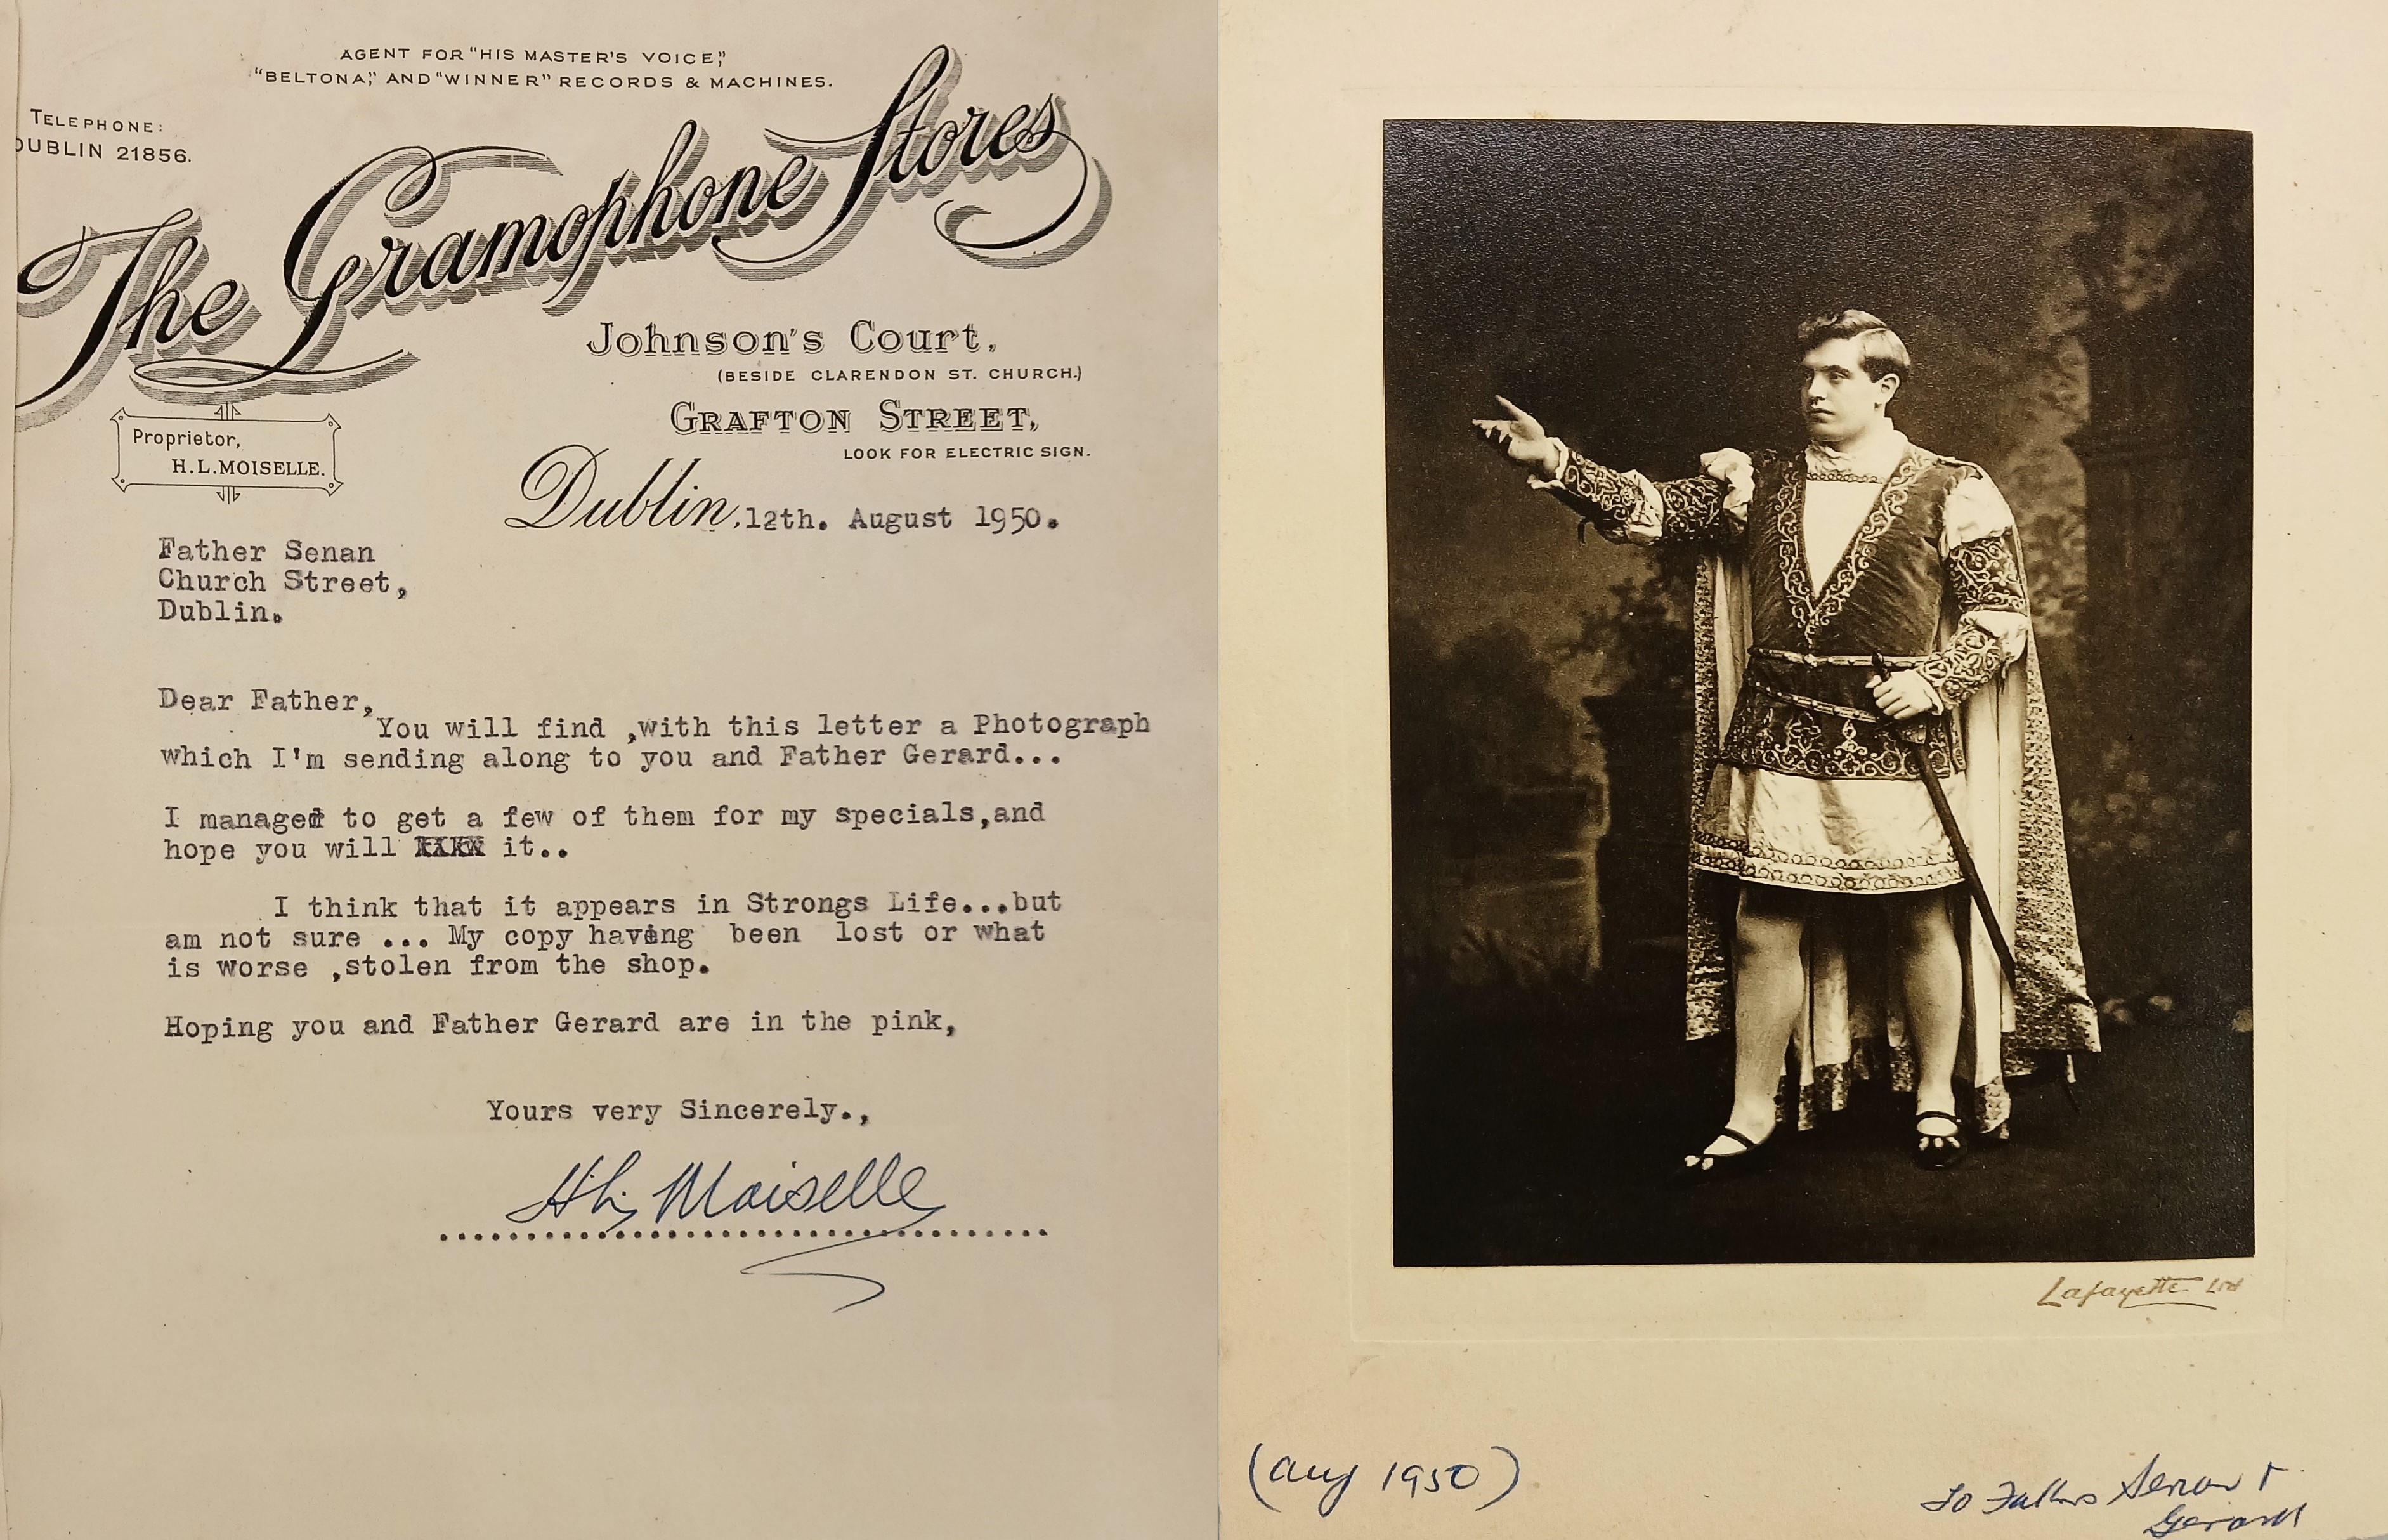 AGENT FOR "HIS MASTER'S VOICE,"
"BELTONA," AND "WINNER" RECORDS & MACHINES.
TELEPHONE:
DUBLIN 21856.
The Gramophone Stores
Johnson's Court,
(BESIDE CLARENDON ST. CHURCH.)
GRAFTON STREET,
LOOK FOR ELECTRIC SIGN.
Proprietor,
H.L.MOISELLE.
Dublin, 12th. August 1950.
Father Senan
Church Street,
Dublin.
Dear Father,
You will find ,with this letter a Photograph
which I'm sending along to you and Father Gerard...
I managed to get a few of them for my specials,and
hope you will it..
I think that it appears in Strongs Life...but
am not sure ... My copy having been lost or what
is worse ,stolen from the shop.
Hoping you and Father Gerard are in the pink,
Yours very Sincerely.,
H.L. Moiselle
Lafayette Ltd
(Aug 1950)
To Fathers Senan &
Gerard